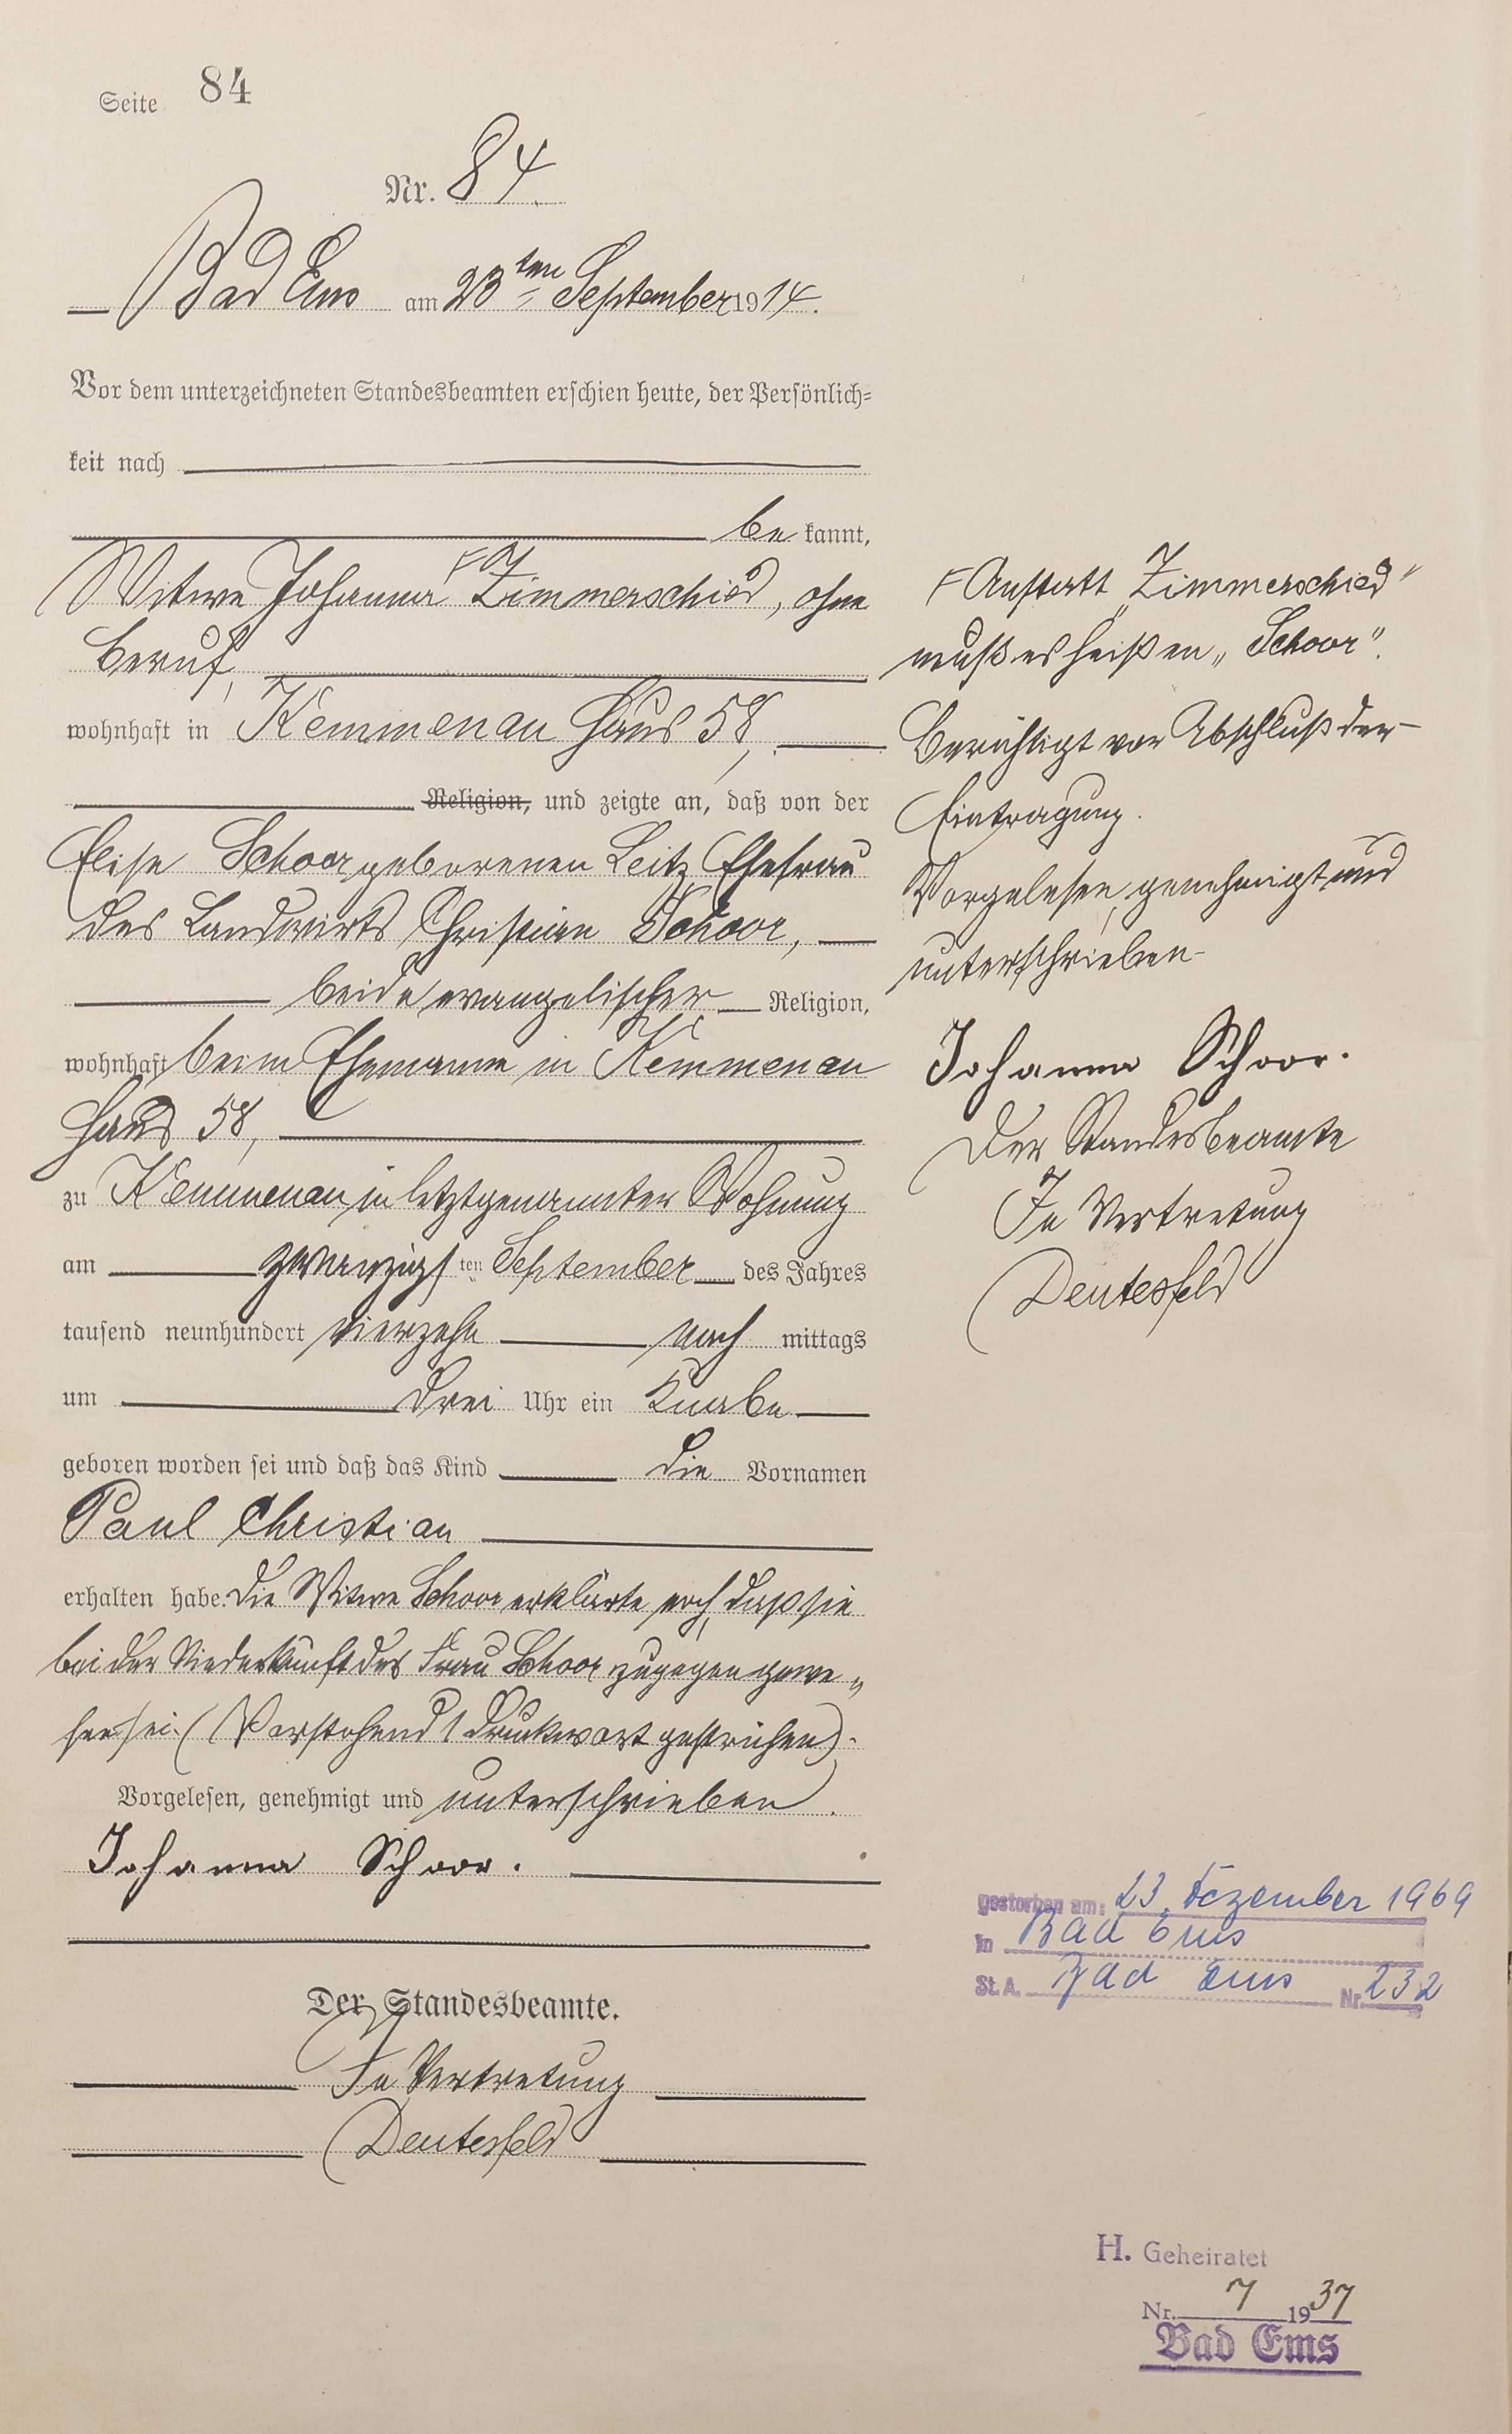 Seite 84
Nr. 84.
Bad Ems am 23ten September 1914.
Vor dem unterzeichneten Standesbeamten erschien heute, der Persönlich=
keit nach
be kannt,
Witwe Johanna Zimmerschied, ohne
Beruf,
wohnhaft in Kemmenau Haus 58,
Religion, und zeigte an, daß von der
Elise Schoor geborenen Leitz Ehefrau
des Landwirts Christian Schoor,
beide evangelischer Religion,
wohnhaft beim Ehemanne in Kemmenau
Haus 58,
zu Kemmenau in letztgenannter Wohnung
am zwanzigsten September des Jahres
tausend neunhundert vierzehn nach mittags
um drei Uhr ein Knabe
geboren worden sei und daß das Kind die Vornamen
Paul Christian
erhalten habe. Die Witwe Schoor erklärte noch, daß sie
bei der Niederkunft der Frau Schoor zugegen gewe„
sen sei. (Vorstehend 1 Druckwort gestrichen).
Vorgelesen, genehmigt und unterschrieben.
Johanna Schoor.
Der Standesbeamte.
In Vertretung
Deutesfeld
Anstatt „Zimmerschied"
muß es heißen „Schoor".
Berichtigt vor Abschluß der
Eintragung.
Vorgelesen, genehmigt und
unterschrieben
Johanna Schoor.
Der Standesbeamte
In Vertretung
Deutesfeld
gestorben am: 23. Dezember 1969
in Bad Ems
St.A. Bad Ems Nr. 232
H. Geheiratet
Nr. 7 1937
Bad Ems